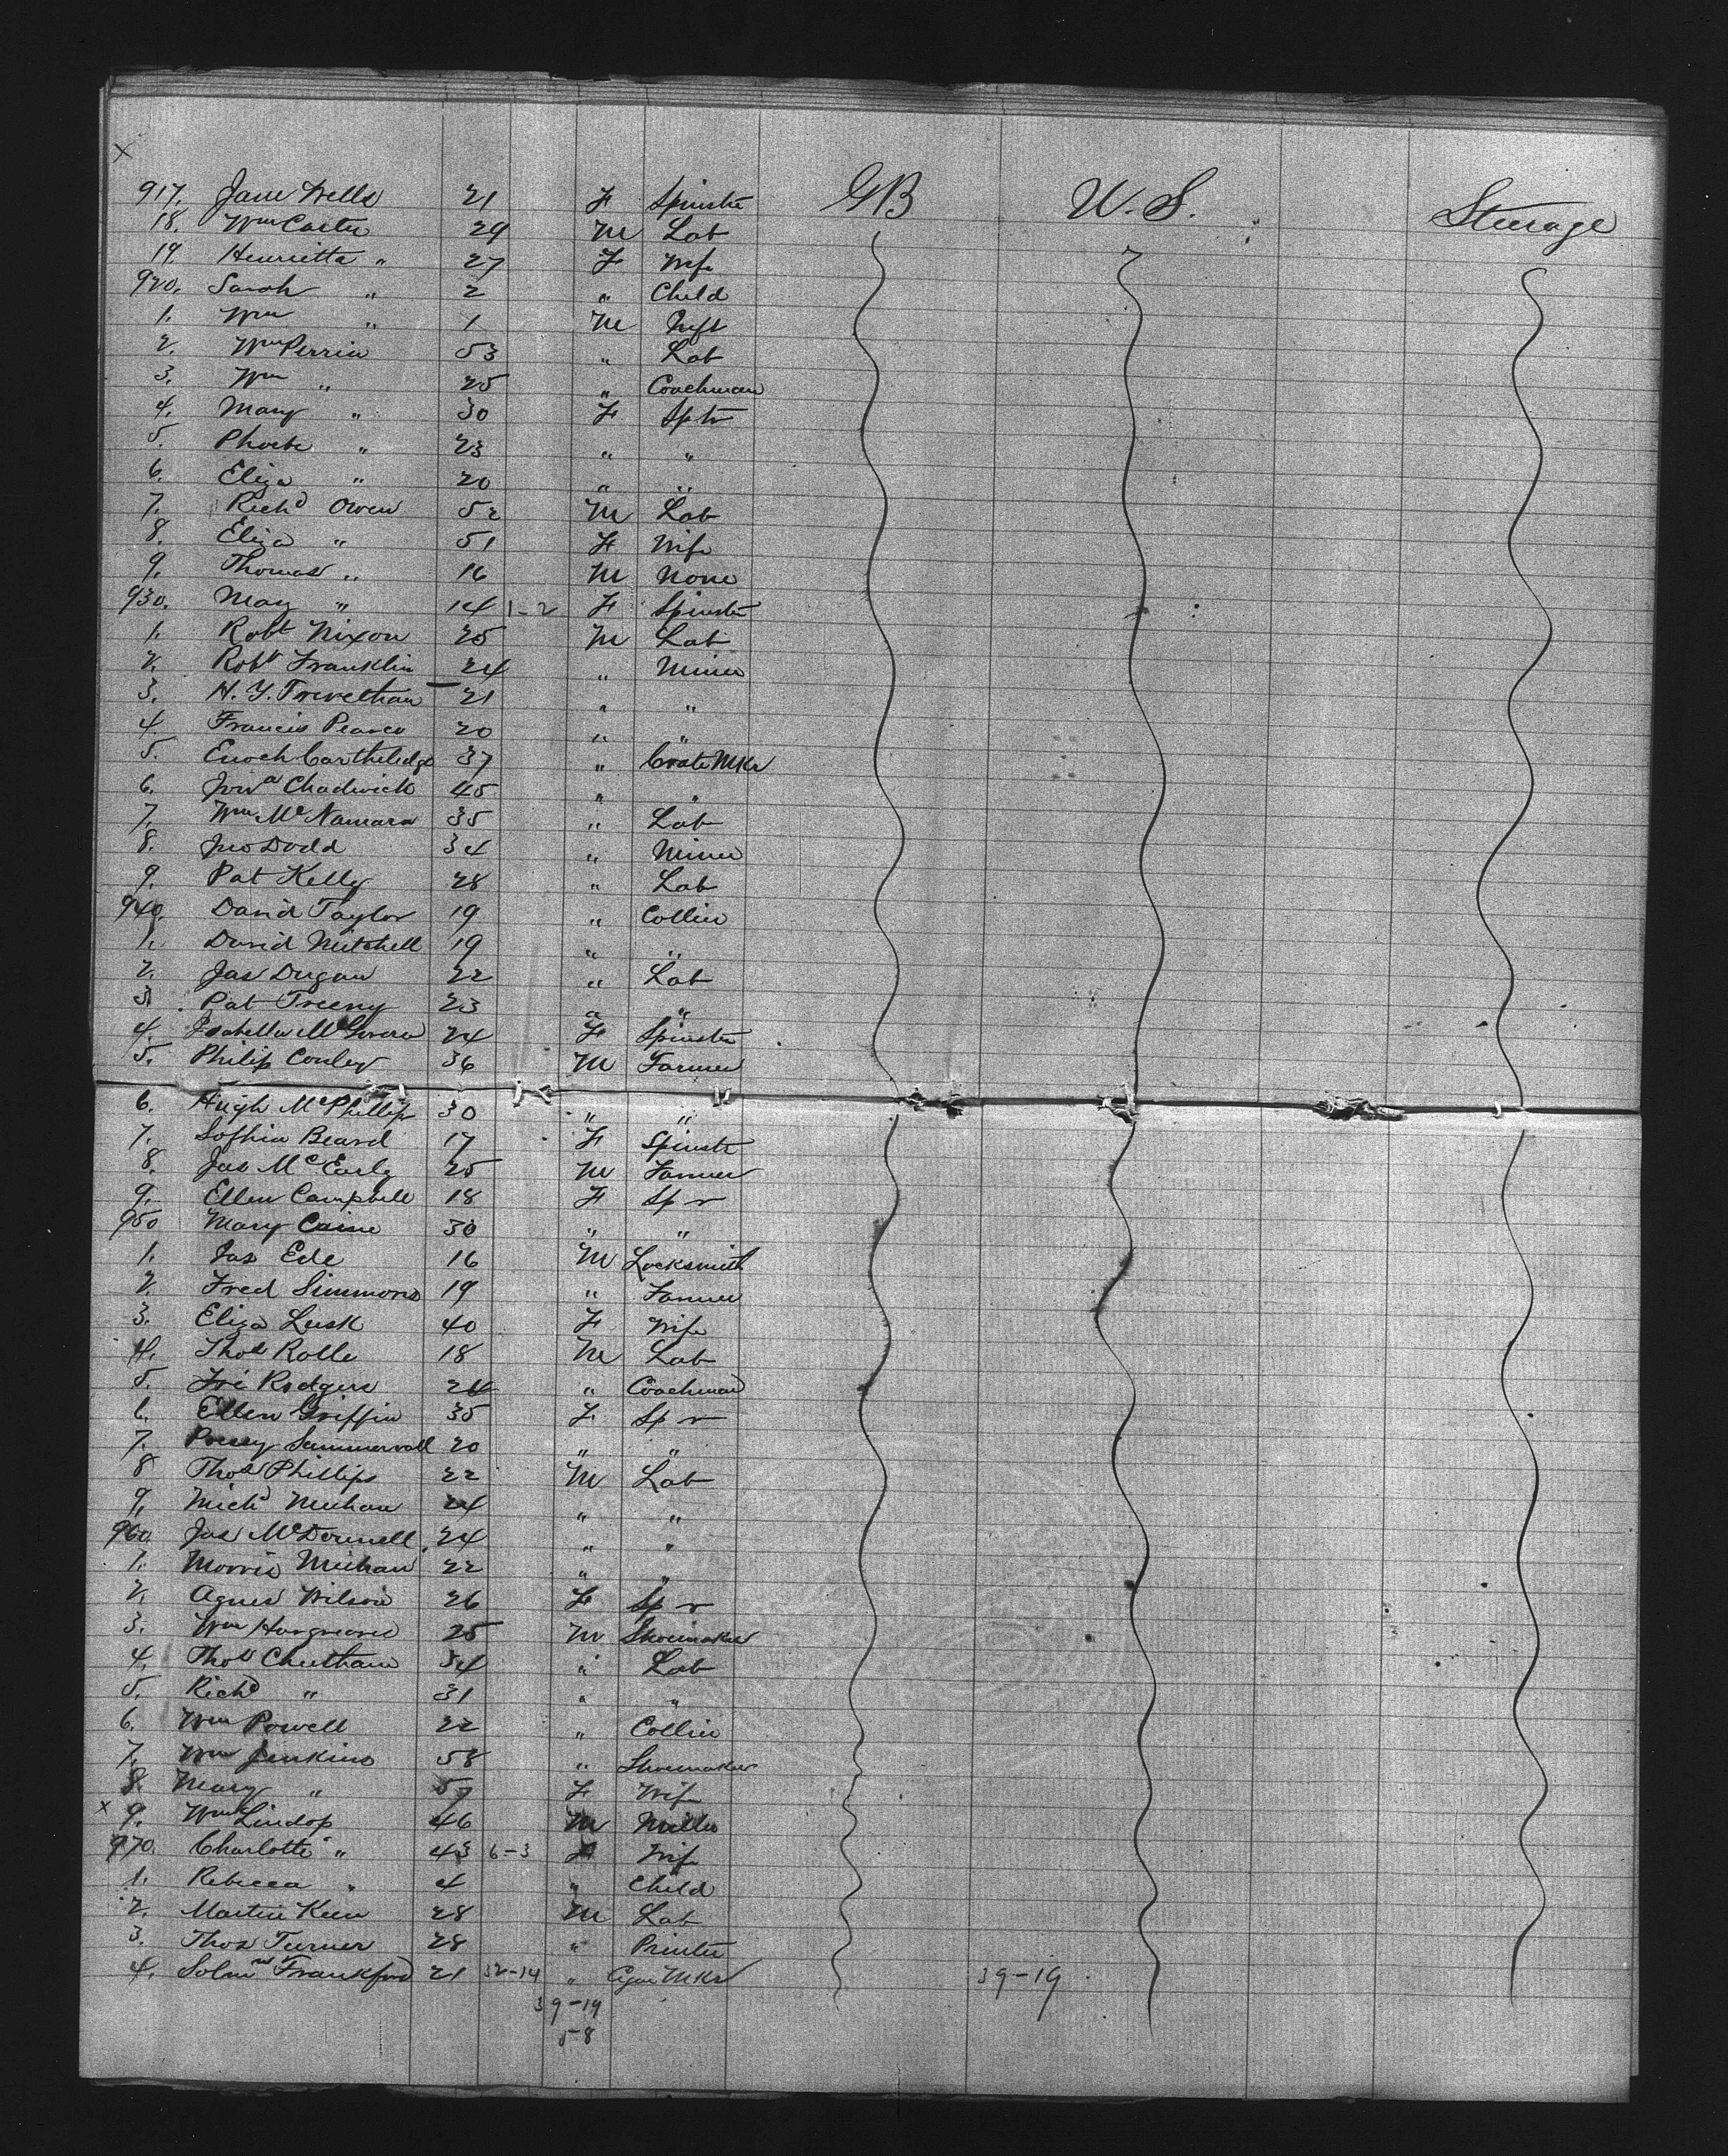 x
917. Jane Wells 21 F Spinster GB U.S. Steerage
18. Wm Carter 29 M Lab
19. Henrietta " 27 F Wife
920. Sarah " 2 " Child
1. Wm " 1 M Inft
2. Wm Perrin 53 " Lab
3. Wm " 25 " Coachman
4. Mary " 30 F Sptr
5. Phoebe " 23 " "
6. Eliza " 20 " "
7. Richd Owen 52 M Lab
8. Eliza " 51 F Wife
9. Thomas " 16 M None
930. May " 14 1-2 F Spinster
1. Robt Nixon 25 M Lab
2. Robt Franklin 24 " Miner
3. H. Y. Trevethan 21 " "
4. Francis Pearce 20 " "
5. Enoch Carthelidge 37 " Crate Mkr
6. Chadwick 45 " "
7. Wm McNamara 35 " Lab
8. Jno Dodd 34 " Miner
9. Pat Kelly 28 " Lab
940. David Taylor 19 " Collier
1. David Mitchell 19 " "
2. Jas Dugan 22 " Lab
3. Pat Treeny 23 " "
4. Isabella McGovern 24 F Spinster
5. Philip Conley 36 M Farmer
6. Hugh McPhillips 30 " "
7. Sophia Beard 17 F Spinster
8. Jas McEarly 25 M Farmer
9. Ellen Campbell 18 F Sp r
950 Mary Caine 30 " "
1. Jas Ede 16 M Locksmith
2. Fred Simmons 19 " Farmer
3. Eliza Lusk 40 F Wife
4. Thos Rolle 18 M Lab
5. Rodgers 24 " Coachman
6. Ellen Griffin 35 F Sp r
7. 20 " "
8 Thos Phillips 22 M Lab
9. Michl Meehan 24 " "
960. Jas McDonnell 24 " "
1. Morris Meehan 22 " "
2. Agnes Wilson 26 F Sp r
3. Wm Hargreaves 25 M Shoemaker
4. Thos Cheetham 34 " Lab
5. Richd " 31 " "
6. Wm Powell 22 " Collier
7. Wm Jenkins 58 " Shoemaker
8. Mary " 57 F Wife
x 9. Wm Lindop 46 M Miller
970. Charlotte " 43 6-3 F Wife
1. Rebecca " 4 " Child
2. Martin Keen 28 M Lab
3. Thos Turner 28 " Printer
4. Solmn Frankford 21 32-14 " Cigar Mkr 39-19
39-19
5-8